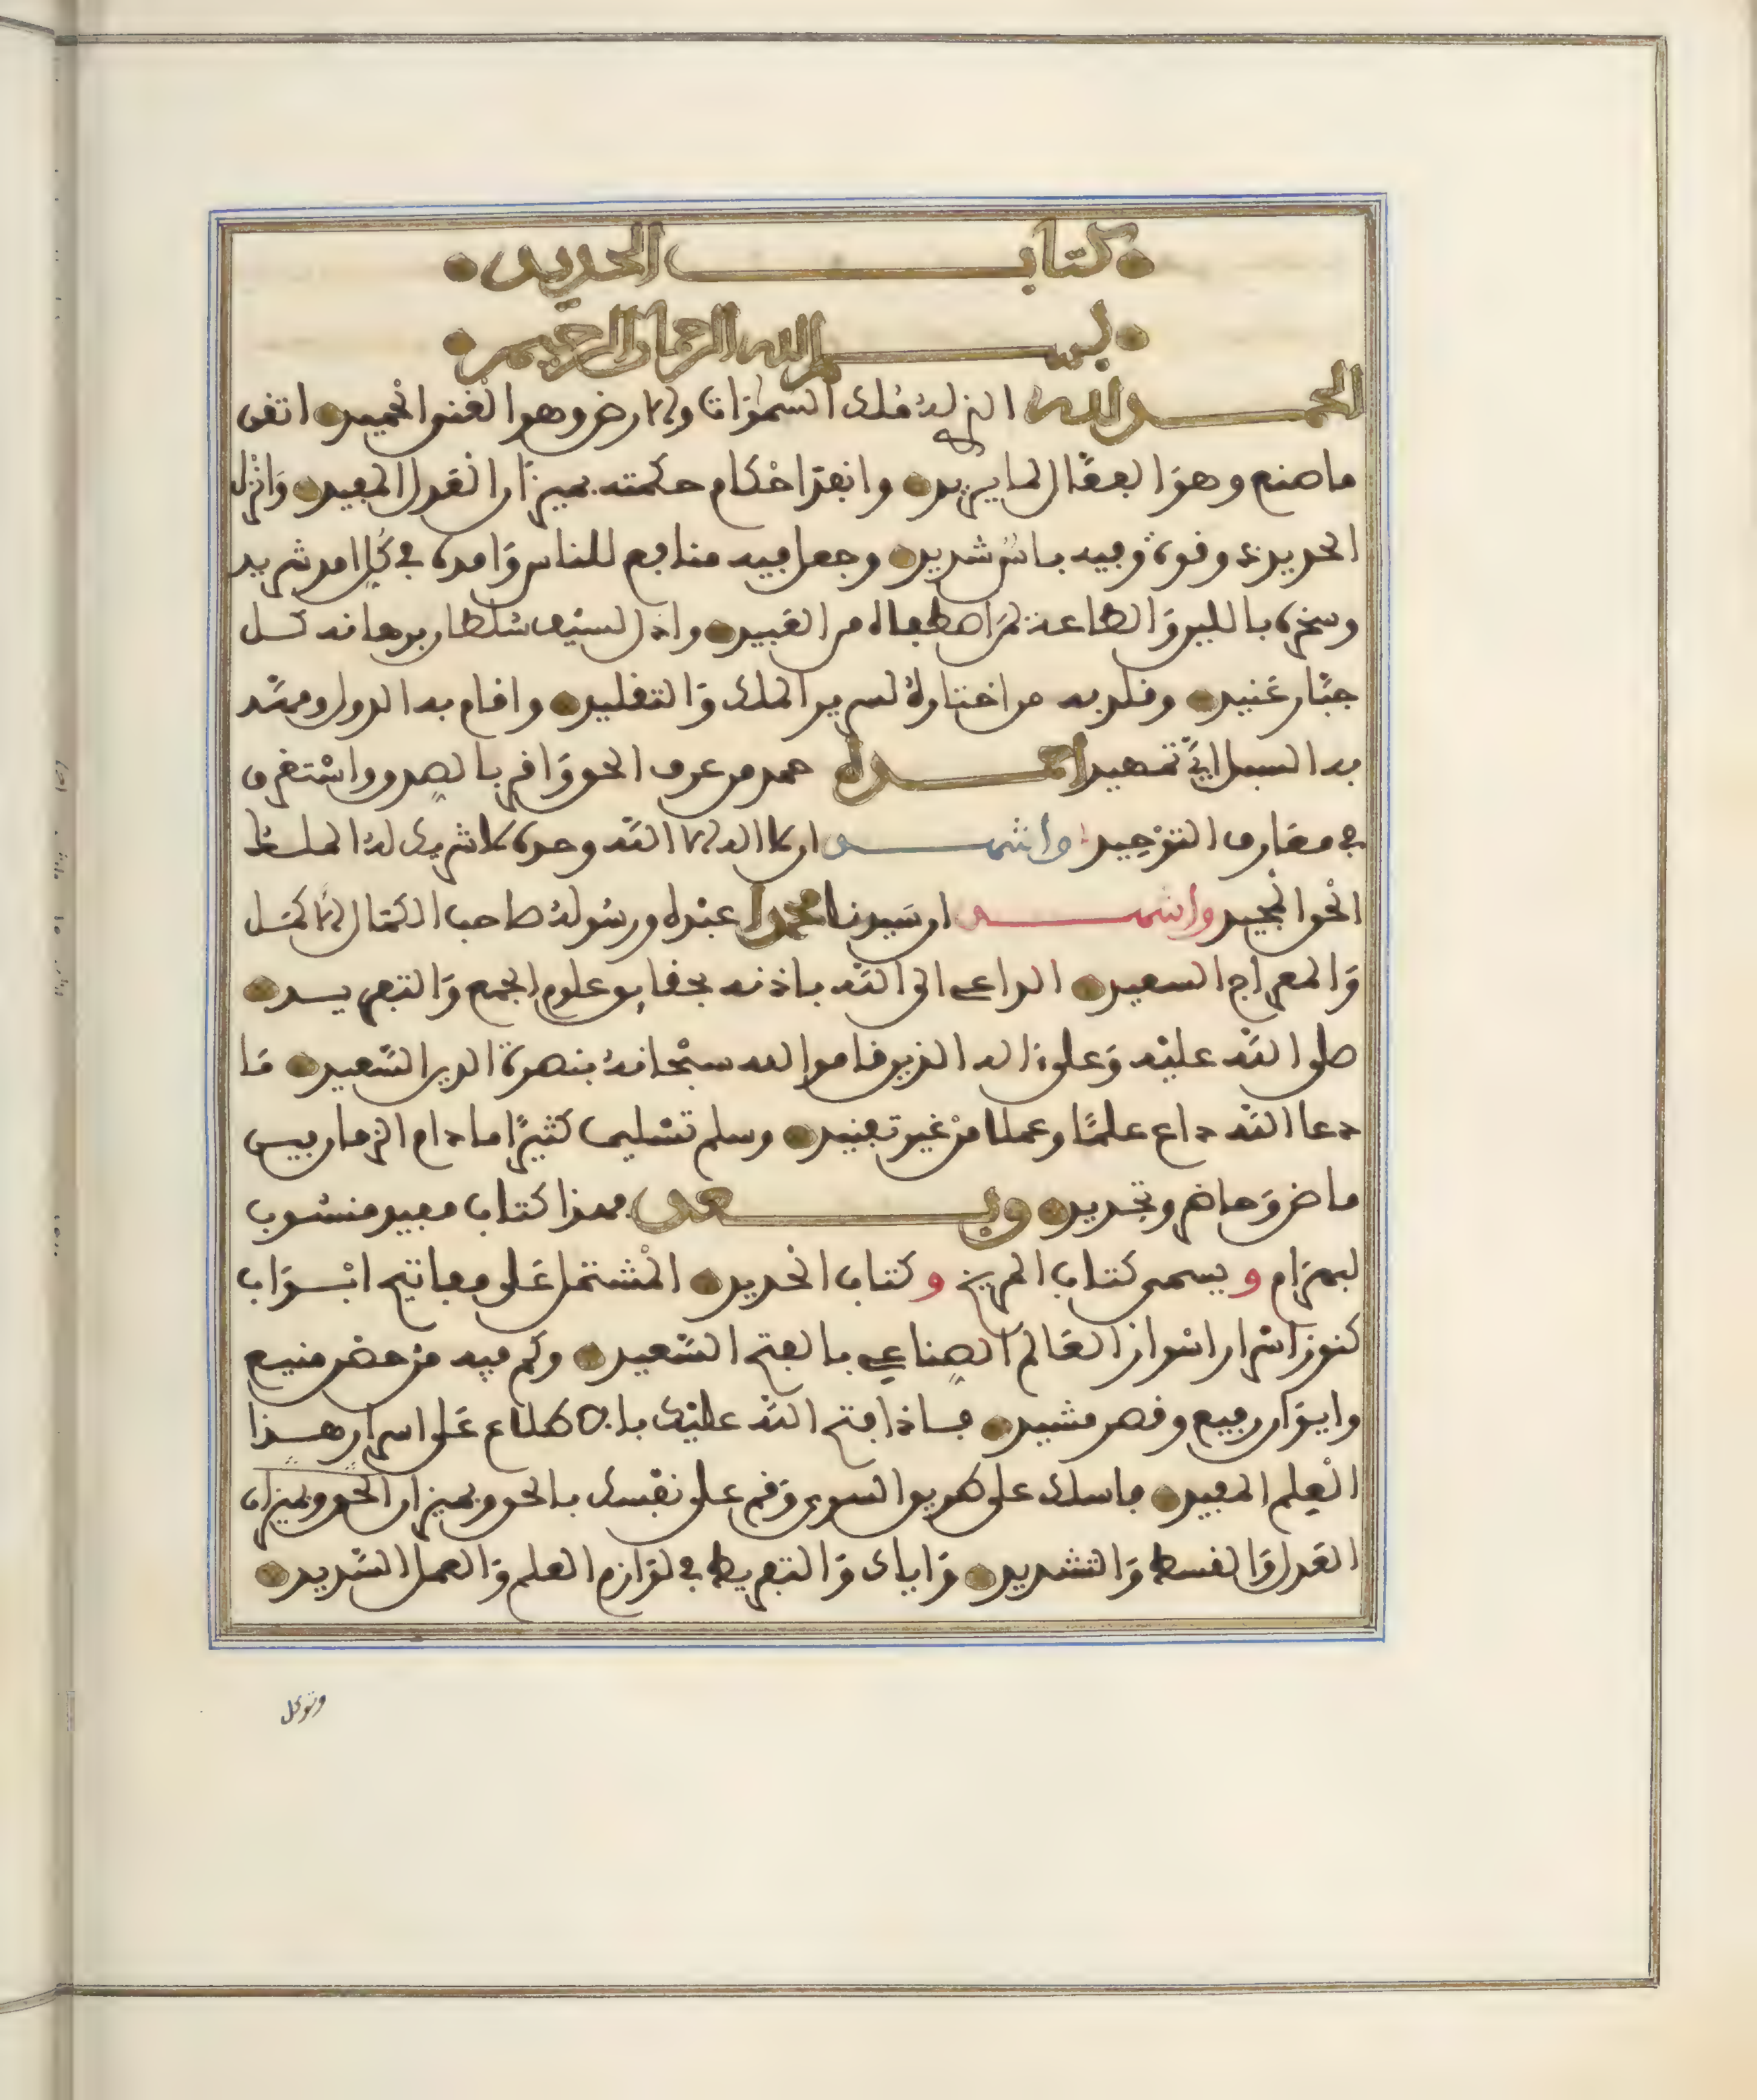 كتاب الحديد
بسم الله الرحمان الرحيم
الحمد لله الذي له ملك السموات والارض وهو الغني الحميد اتقن
ما صنع وهو الفعال لما يريد وانفذ احكام حكمته بميزان العدل المفيد وانزل
الحديد وقوة وفيه باس شديد وجعل فيه منافع للناس وامده في كل امر شديد
وسخره باللين والطاعة لمن اصطفاه من العبيد واذل لسيف سلطان برهانه كل
جبار عنيد وقلد به من اختاره لسرير الملك والتقليد واقام به الدول ومهد
به السبل اي تمهيد احمده حمد من عرف الحق واقر بالصدق واستغرق
في معارف التوحيد واشهد ان لا اله الا الله وحده لا شريك له الملك
الحق المجيد واشهد ان سيدنا محمدا عبده ورسوله صاحب الكمال الاكمل
والمعراج السعيد الداعي الى الله باذنه بحقايق علوم الجمع والتفريد
صلى الله عليه وعلى ءاله الذين قاموا لله سبحانه بنصرة الدين السعيد ما
دعا الله داع علما وعملا من غير تفنيد وسلم تسليما كثيرا ما دام الزمان بين
ماض وحاضر وتجديد وبعد فهذا كتاب مفيد منسوب
لبهرام ويسمى كتاب المريخ وكتاب الحديد المشتمل على مفاتيح ابواب
كنوز اسرار اسوار العالم الصناعي بالفتح السعيد وكم فيه من حصن منيع
وايوان رفيع وقصر مشيد فاذا فتح الله عليك بالاطلاع على اسرار هذا
العلم المفيد فاسلك على طريق السوى وقم على نفسك بالحق وبميزان الحق وميزان
العدل والقسط والتشديد واياك والتفريط في لوازم العلم والعمل الشديد
وتوكل